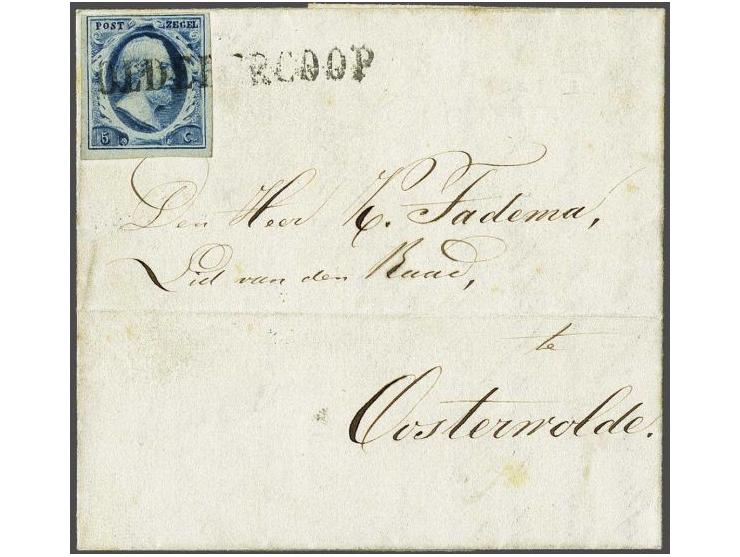 POST ZEGEL
OLDEBERCOOP
5 C.
Den Heer K. Fadema,
Lid van den Raad,
te
Oosterwolde.